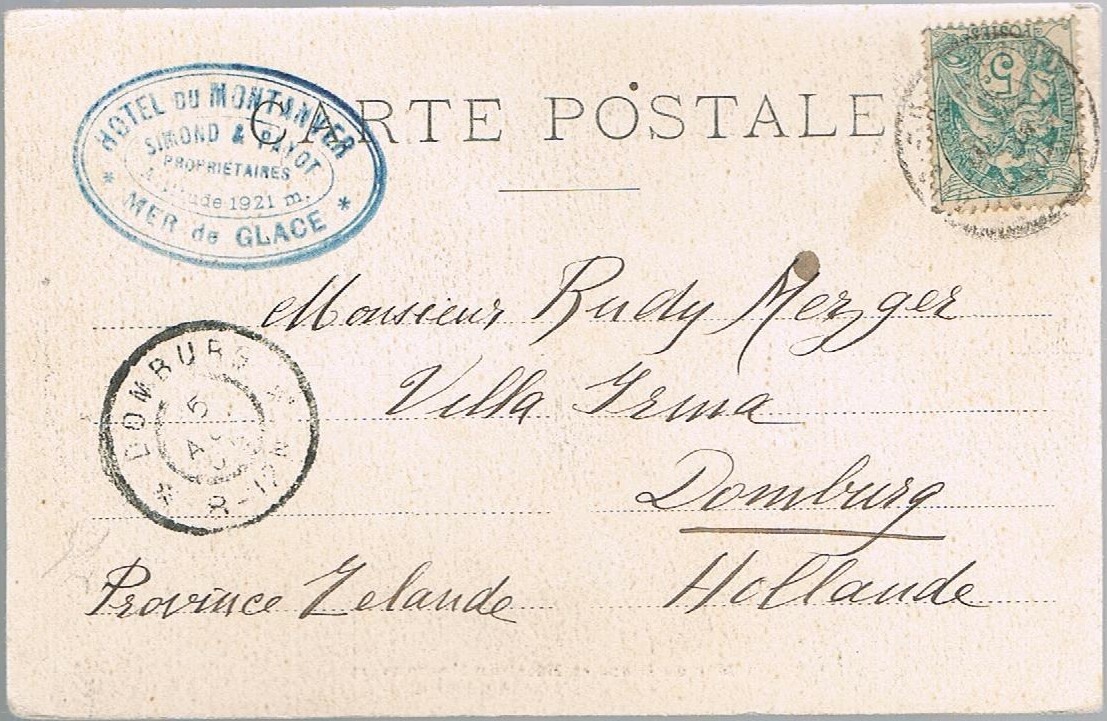 CARTE POSTALE
HOTEL DU MONTANVER
SIMOND & PAYOT
PROPRIÉTAIRES
1921 m.
* MER de GLACE *
POSTES
5
Monsieur Rudy Merzger
Villa Irma
Domburg
Hollande
Province Zelande
* DOMBURG *
5
8-12